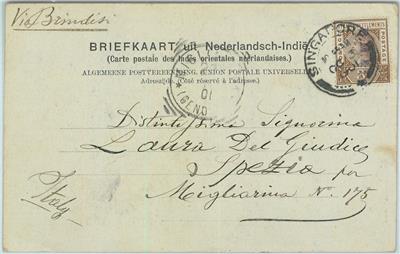 Via Brindisi
BRIEFKAART uit Nederlandsch-Indië.
(Carte postale des Indes orientales néerlandaises.)
ALGEMEENE POSTVEREENIGING (UNION POSTALE UNIVERSELLE)
Adreszijde. (Côté réservé à l'adresse.)
SINGAPORE
POSTAGE
01
Distintissima Signorina
Laura Del Giudice
Spezia per
Migliarina No. 175
Italy